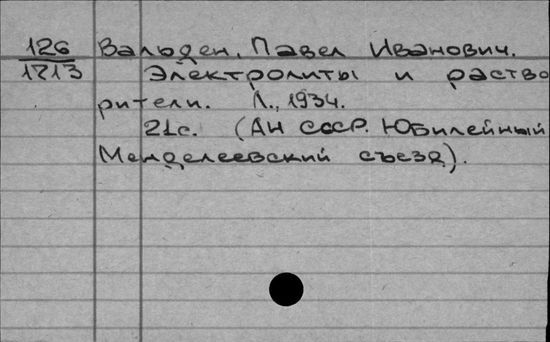 126 Вальден, Павел Иванович.
1213 Электролиты и раство
рители. Л., 1934.
21с. (АН СССР. Юбилейный
Менделеевский съезд).